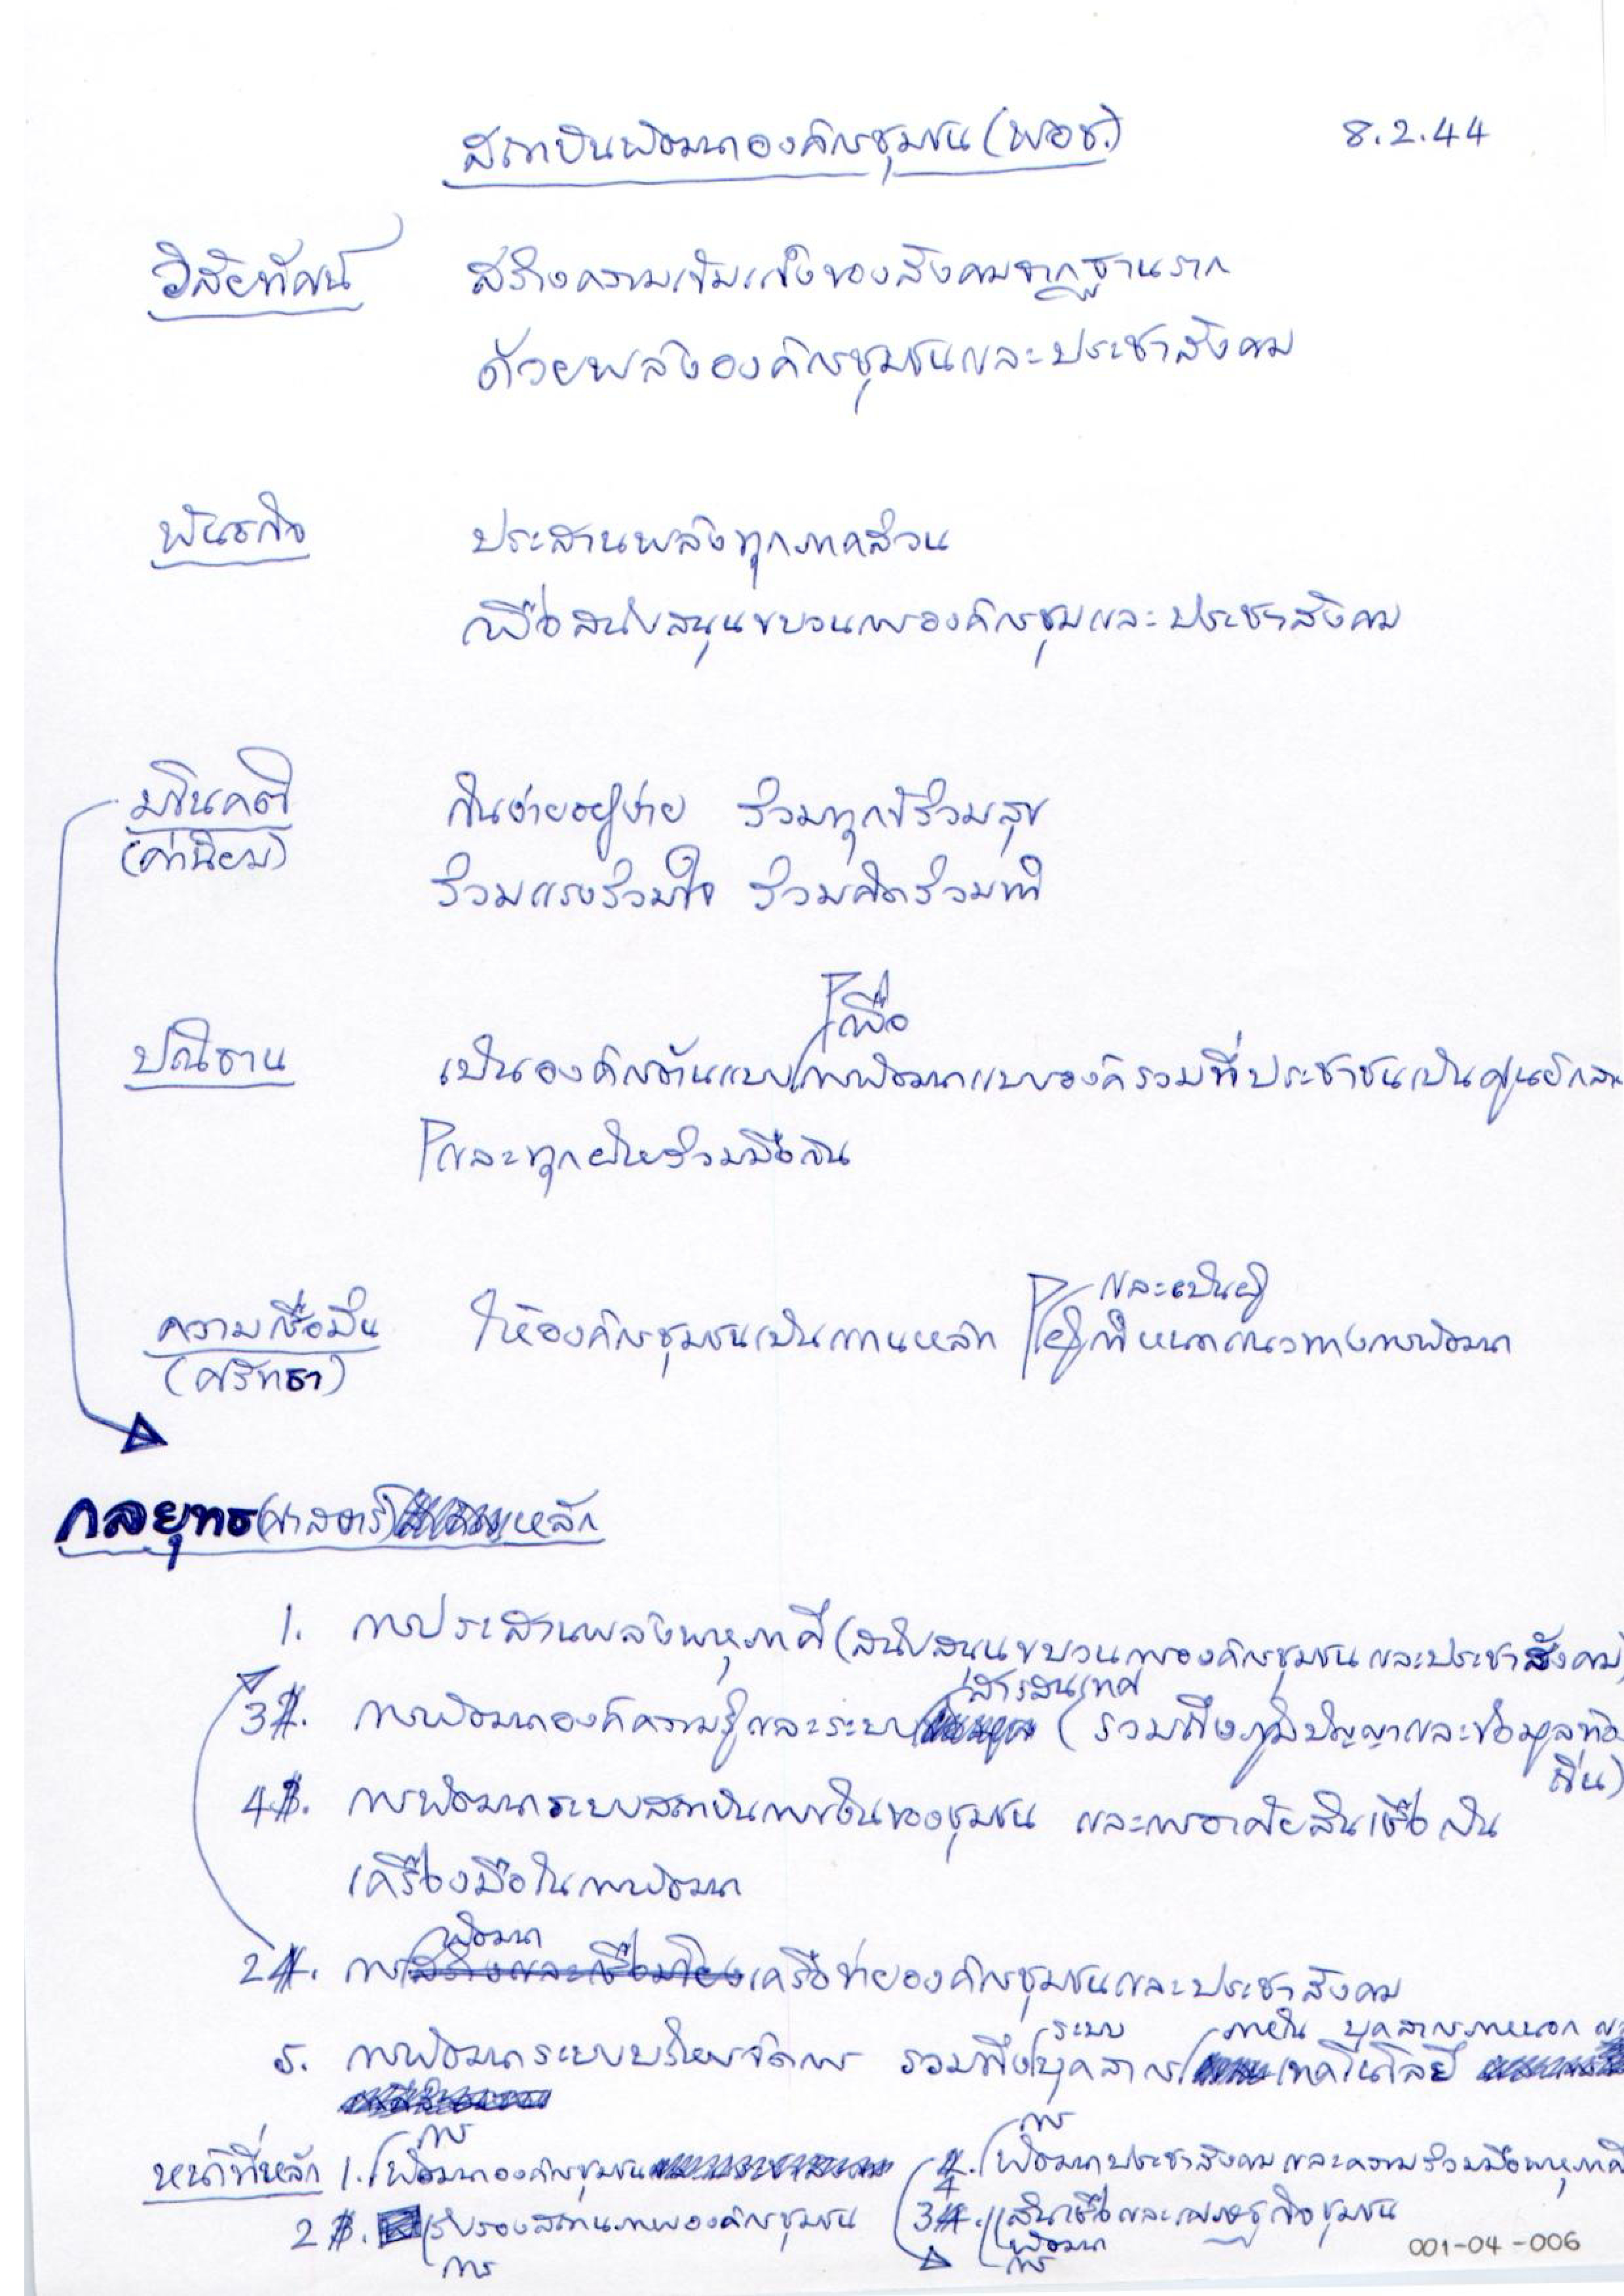 สถาบันพัฒนาองค์กรชุมชน (พอช.) 8.2.44
วิสัยทัศน์ สร้างความเข้มแข็งของสังคมจากฐานราก
ด้วยพลังองค์กรชุมชนและประชาสังคม
พันธกิจ ประสานพลังทุกภาคส่วน
เพื่อสนับสนุนขบวนการองค์กรชุมและประชาสังคม
มชินคติ กินง่ายอยู่ง่าย ร่วมทุกข์ร่วมสุข
(ค่านิยม) ร่วมแรงร่วมใจ ร่วมคิดร่วมทำ
เพื่อ
ปณิธาน เป็นองค์กรต้นแบบการพัฒนาแบบองค์รวมที่ประชาชนเป็นศูนย์กลา
และทุกฝ่ายร่วมมือกัน
และเป็นผู้
ความเชื่อมั่น ให้องค์กรชุมชนเป็นแกนหลัก ผู้กำหนดแนวทางการพัฒนา
(ศรัทธา)
กลยุทธ(ศาสตร์) หลัก
1. การประสานพลังพหุภาคี (สนับสนุนขบวนการองค์กรชุมชนและประชาสังคม)
สารสนเทศ
3. การพัฒนาองค์ความรู้และระบบ (รวมถึงภูมิปัญญาและข้อมูลท้อง
ถิ่น)
4. การพัฒนาระบบสถาบันการเงินของชุมชน และการอาศัยสินเชื่อเป็น
เครื่องมือในการพัฒนา
พัฒนา
2. การสร้างและเชื่อมโยงเครือข่ายองค์กรชุมชนและประชาสังคม
ระบบ ภายใน บุคลากรภายนอก
5. การพัฒนาระบบบริหารจัดการ รวมถึงบุคลากร เทคโนโลยี
การ การ
หน้าที่หลัก 1. พัฒนาองค์กรชุมชน 4. พัฒนาประชาสังคมและความร่วมมือพหุภาคี
2. รับรองสถานภาพองค์กรชุมชน 3. สินเชื่อและเศรษฐกิจชุมชน
การ พัฒนา
การ
001-04-006